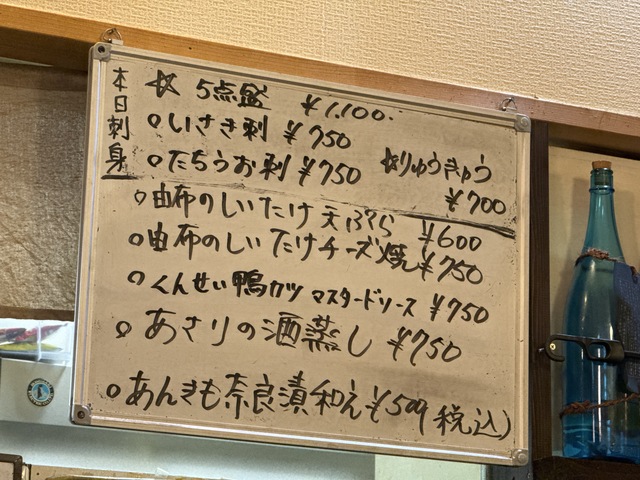 本日刺身
☆ 5点盛 ¥1,100.
○いさき刺 ¥750
○たちうお刺 ¥750
☆りゅうきゅう
¥700
○由布のしいたけ天ぷら ¥600
○由布のしいたけチーズ焼 ¥750
○くんせい鴨カツ マスタードソース ¥750
○あさりの酒蒸し ¥750
○あんきも奈良漬和え ¥500(税込)